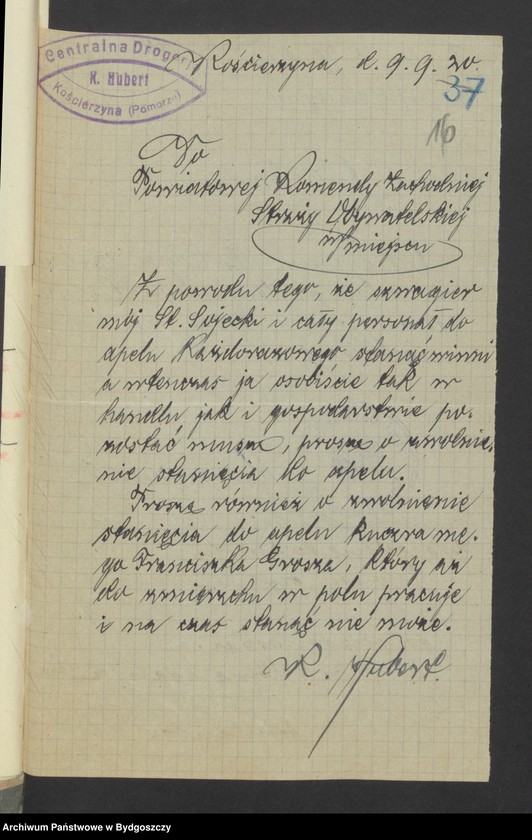 Centralna Drogeri
K. Hubert
Kościerzyna (Pomorze)
Kościerzyna, d. 9. 9. 20.
37
16
Do
Powiatowej Komendy Zachodniej
Straży Obywatelskiej
w miejscu
Z powodu tego, że szwagier
mój St. Sojecki i cały personał do
apelu każdorazowego stanąć winni
a wtenczas ja osobiście tak w
handlu jak i gospodarstwie po-
zostać muszę, proszę o zwolnie-
nie stanięcia do apelu.
Proszę również o zwolnienie
stanięcia do apelu kuczra me-
go Franciszka Grosza, który aż
do zmierzchu w polu pracuje
i na czas stanąć nie może.
K. Hubert.
Archiwum Państwowe w Bydgoszczy